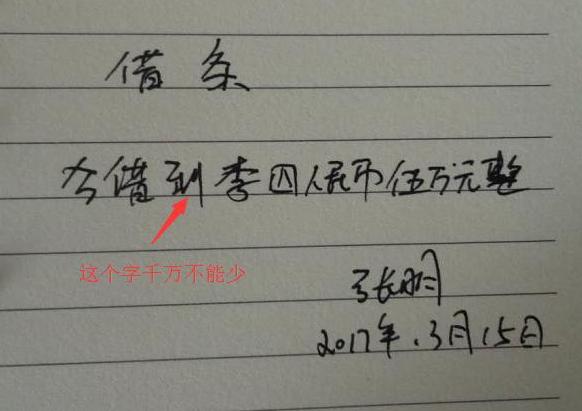 借条
今借到李四人民币伍万元整
这个字千万不能少
张明
2017年.3月15日